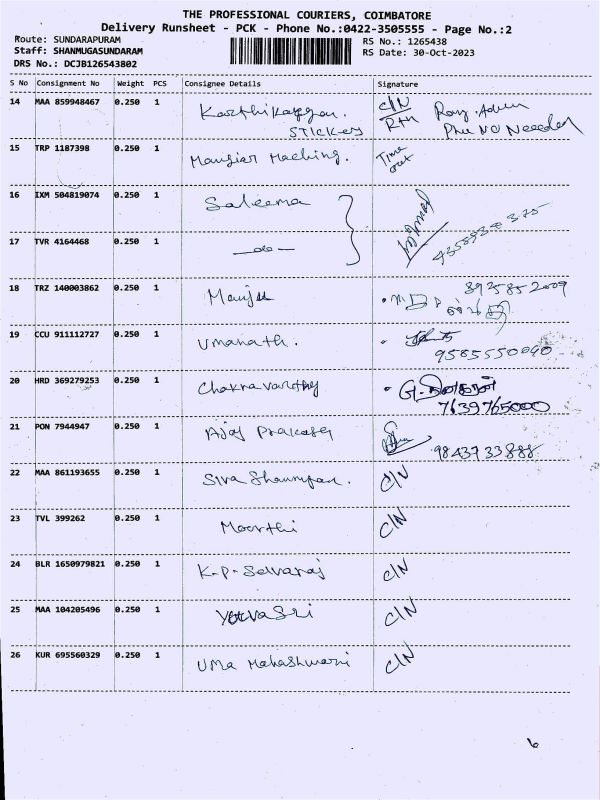 THE PROFESSIONAL COURIERS, COIMBATORE
Delivery Runsheet - PCK - Phone No.:0422-3505555 - Page No.:2
Route: SUNDARAPURAM
RS No.: 1265438
Staff: SHANMUGASUNDARAM
RS Date: 30-Oct-2023
DRS No.: DCJB126543802
S No Consignment No Weight PCS Consignee Details Signature
14 MAA 859948467 0.250 1 C/N
STICKERS RTN
Phe NO Needed
15 TRP 1187398 0.250 1 Time
out
16 IXM 504819074 0.250 1 Saleema
17 TVR 4164468 0.250 1 —do—
18 TRZ 140003862 0.250 1 8925852009
19 CCU 911112727 0.250 1 Umanath.
9585550090
20 HRD 369279253 0.250 1 Chakravarothy
7639765000
21 PON 7944947 0.250 1 Ajay Prakash
9843733888
22 MAA 861193655 0.250 1 Siva C/N
23 TVL 399262 0.250 1 Moorthi C/N
24 BLR 1650979821 0.250 1 K.P. Selvaraj C/N
25 MAA 104205496 0.250 1 YuvaSri C/N
26 KUR 695560329 0.250 1 Uma Mahashwari C/N
6